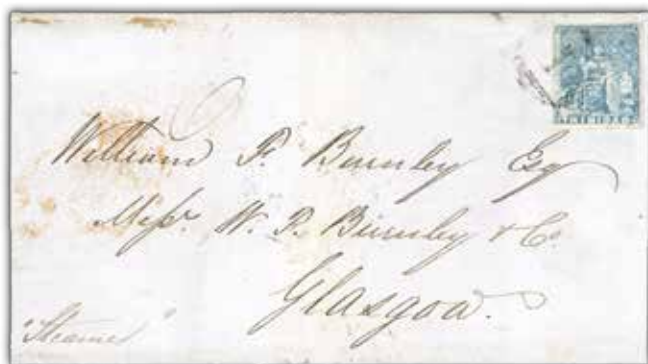 William P. Burnley Esq
Messrs. W. P. Burnley & Co.
Glasgow.
"Steamer"